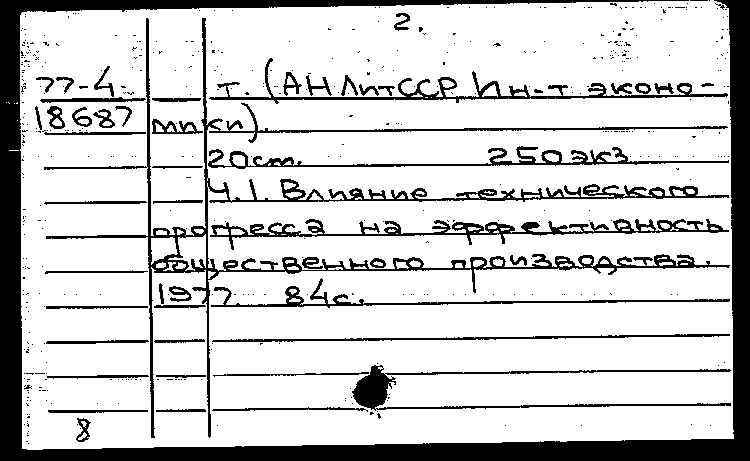 2.
77-4
18687
т. (АН ЛитССР, Ин-т эконо-
мики).
20 cm. 250 экз
Ч.1. Влияние технического
прогресса на эффективность
общественного производства.
1977. 84с.
8